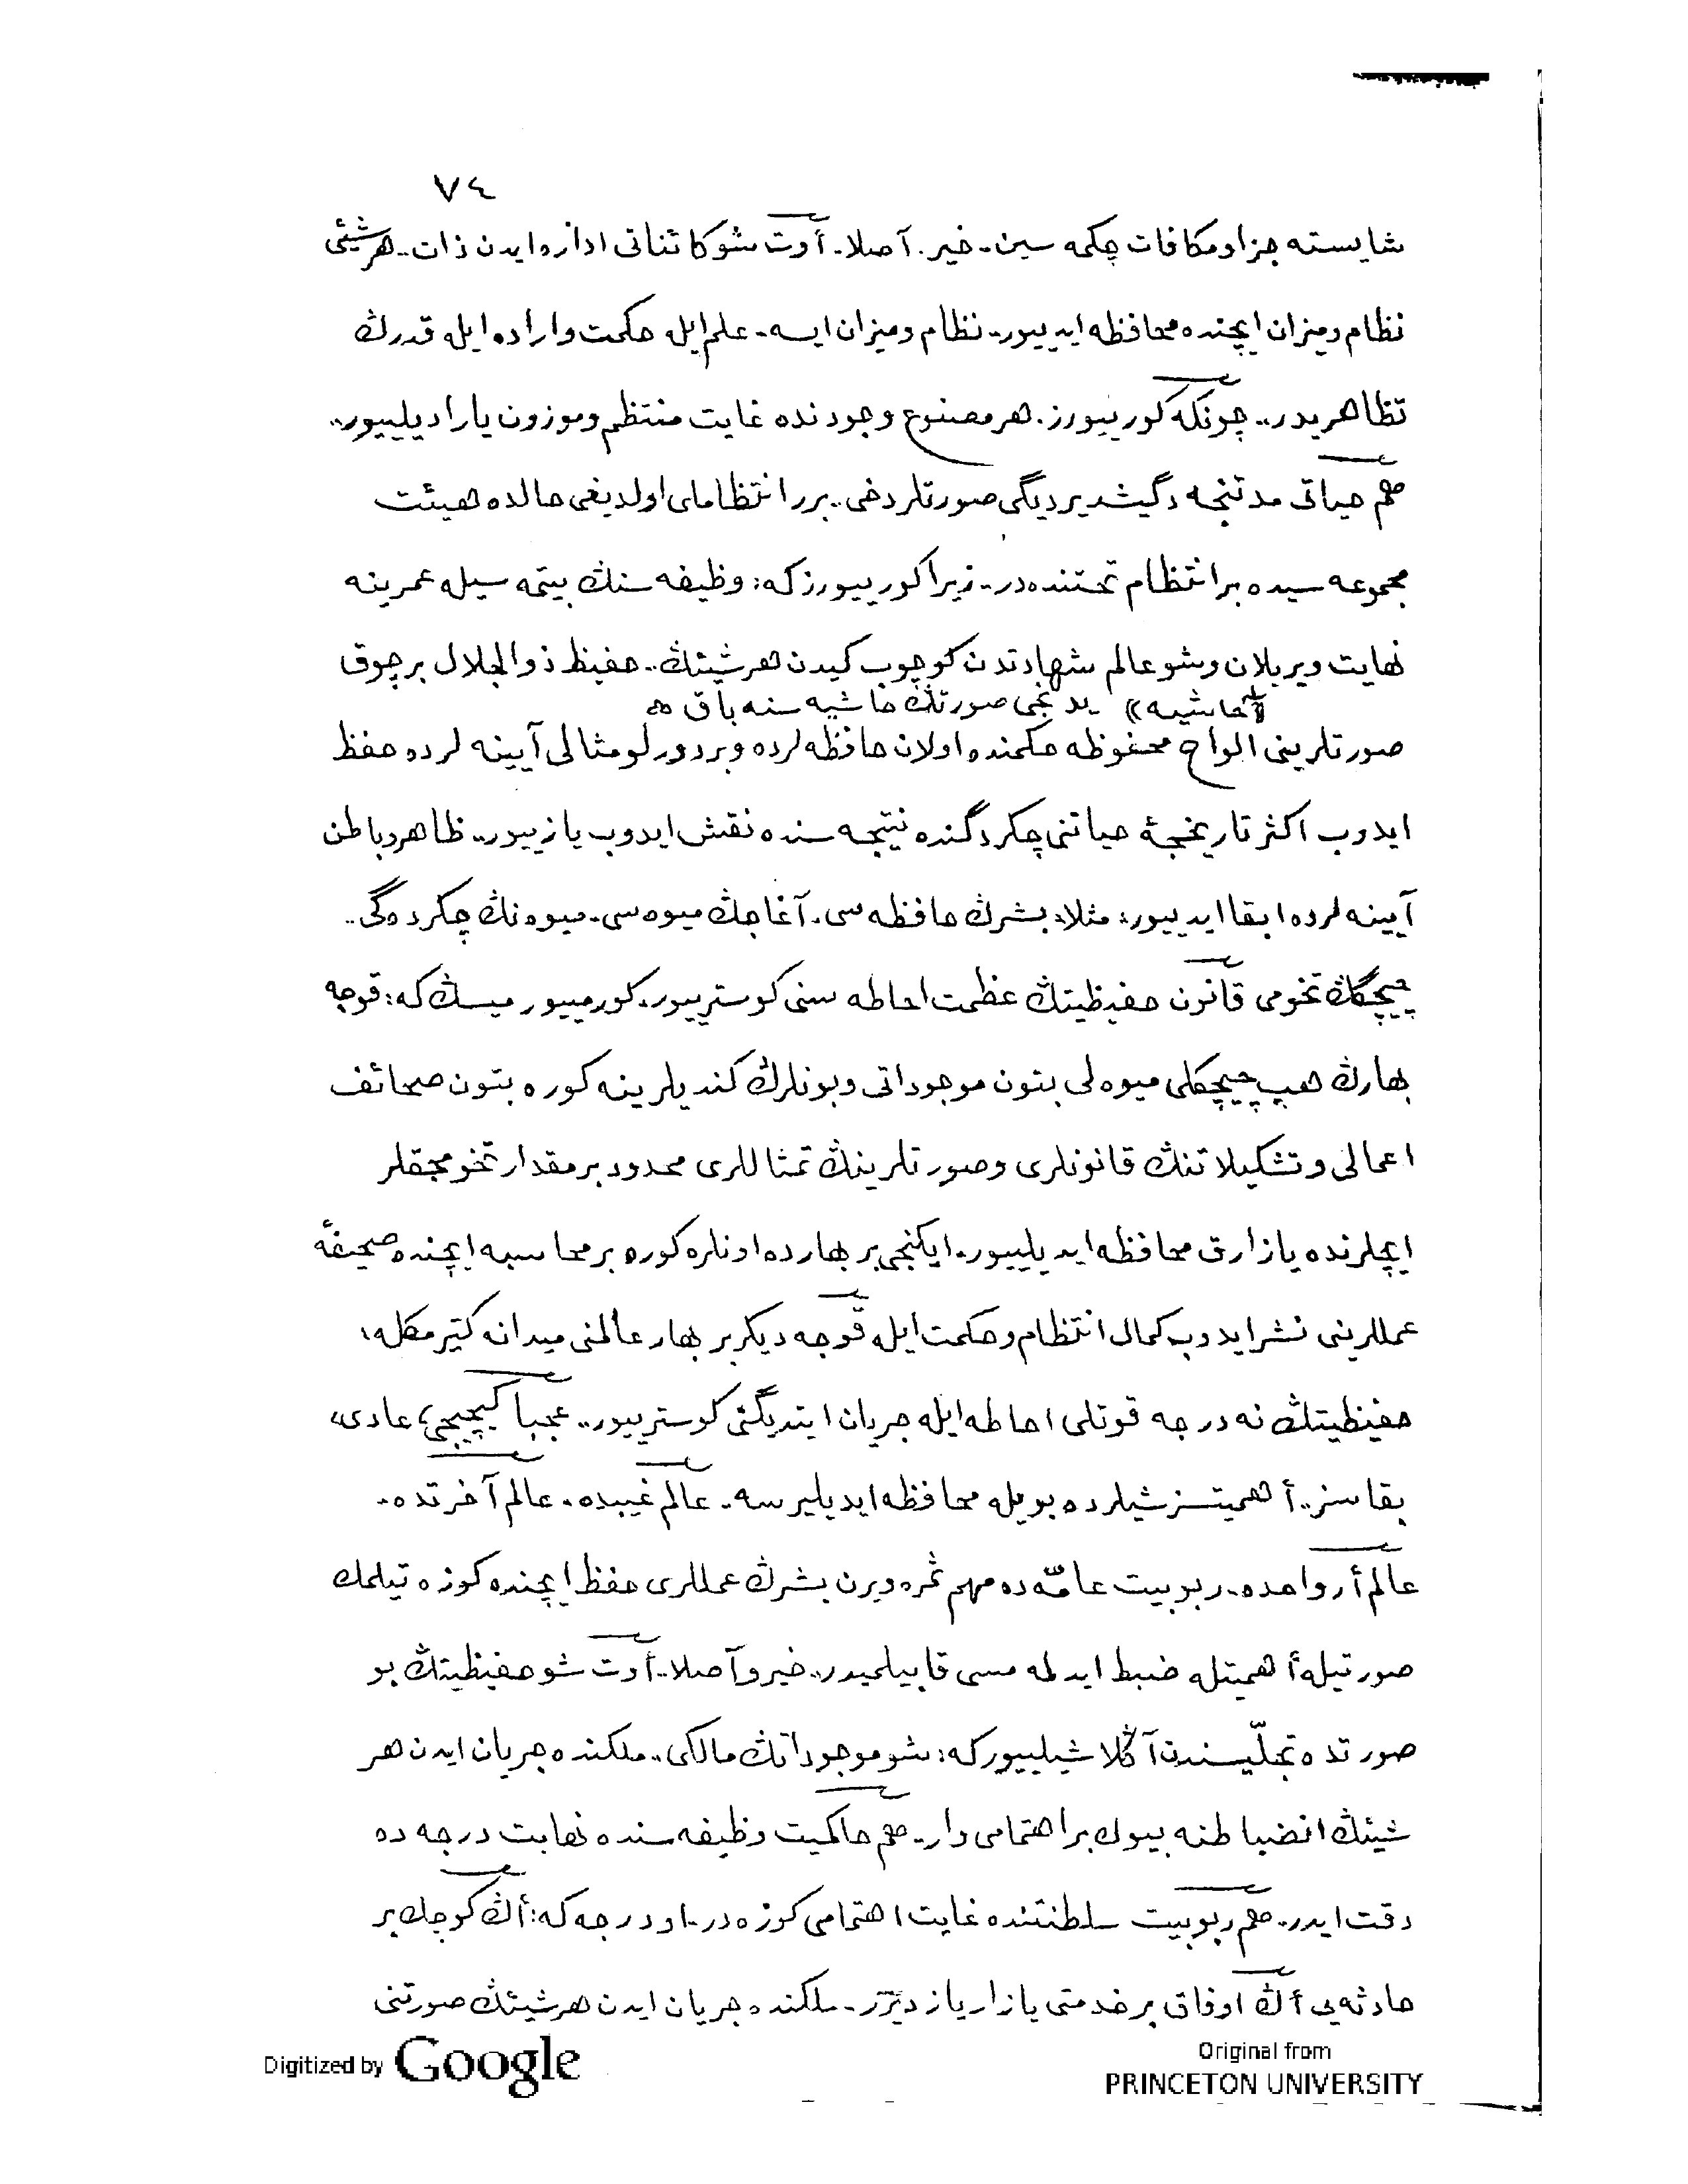 ٧٤
شايسته جزا و مكافات چكمه سين - خير . آصلا - أوت شو كائناتى اداره ايدن ذات .. هر شيئى
نظام و ميزان ايچنده محافظه ايدييور - نظام و ميزان ايسه - علم ايله حكمت و اراده ايله قدرتڭ
تظاهريدر .. چونكه كورييورز . هر مصنوع وجودنده غايت منتظم و موزون ياراديلييور ..
هم حياتى مدتنجه دگيشديرديگى صورتلر دخى .. برر انتظاملى اولديغى حالده هيئت
مجموعه سيده بر انتظام تحتنده در - زيرا كورييورز كه : وظيفه سنڭ بيتمه سيله عمرينه
نهايت ويريلان و شو عالم شهادتدن كوچوب كيدن هر شيئڭ .. حفيظ ذوالجلال بر چوق
(حاشيه) يدنجى صورتڭ حاشيه سنه باق
صورتلرينى الواح محفوظه حكمنده اولان حافظه لرده و بر دورلو مثالى آيينه لرده حفظ
ايدوب اكثر تاريخچۀ حياتنى چكردگنده نتيجه سنده نقش ايدوب يازييور .. ظاهر و باطن
آيينه لرده ابقا ايدييور : مثلا : بشرڭ حافظه سى . آغاجڭ ميوه سى . ميوه نڭ چكردەگى ..
چيچگڭ تخومى قانون حفيظيتڭ عظمت احاطه سنى كوسترييور . كورمييورميسڭ كه : قوجه
بهارڭ هپ چيچكلى ميوه لى بتون موجوداتى و بونلرڭ كنديلرينه كوره بتون صحائف
اعمالى و تشكيلاتنڭ قانونلرى و صورتلرينڭ تمثاللرى محدود بر مقدار تخومجقلر
ايچلرنده يازارق محافظه ايديلييور . ايكنجى بر بهارده اونلره كوره بر محاسبه ايچنده صحيفۀ
عمللرينى نشر ايدوب كمال انتظام و حكمت ايله قوجه ديكر بر بهار عالمنى ميدانه كتيرمكله ،
حفيظيتڭ نه درجه قوتلى احاطه ايله جريان ايتديگنى كوسترييور .. عجبا كيچيجى ، عادى ،
بقاسز .. أهميتسز شيلرده بويله محافظه ايديليرسه - عالم غيبده . عالم آخرتده .
عالم أرواحده . ربوبيت عامّه ده مهم ثمره ويرن بشرڭ عمللرى حفظ ايچنده كوزه تيلمك
صورتيله أهميتله ضبط ايدلمه مسى قابيلميدر .. خير و آصلا .. أوت شو حفيظيتڭ بو
صورتده تجلّيسندن آڭلاشيلييور كه : شو موجوداتڭ مالكى .. ملكنده جريان ايدن هر
شيئڭ انضباطنه بيوك بر اهتمامى وار - هم حاكميت وظيفه سنده نهايت درجه ده
دقت ايدر - هم ربوبيت سلطنتنده غايت اهتمامى كوزه در - او درجه كه : أڭ كوچك بر
حادثه يى أڭ اوفاق بر خدمتى يازار يازديرر - ملكنده جريان ايدن هر شيئڭ صورتنى
Digitized by Google
Original from
PRINCETON UNIVERSITY